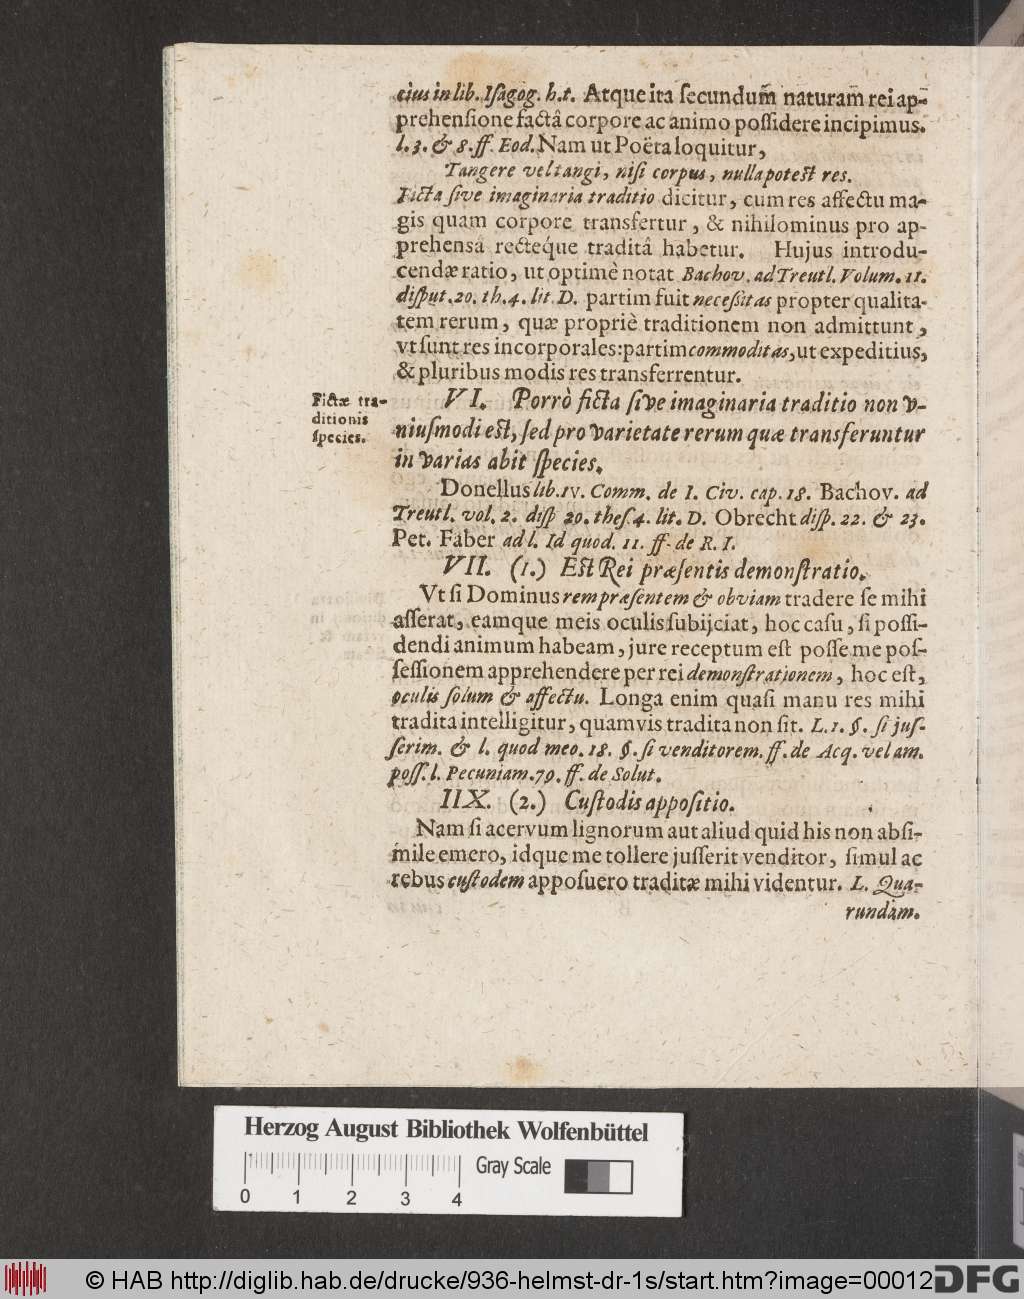 cius in lib. Isagog. h.t. Atque ita secundum̄ naturam̄ rei ap-
prehensione factâ corpore ac animo possidere incipimus.
l. 3. & 8. ff. Eod. Nam ut Poëta loquitur,
Tangere vel tangi, nisi corpus, nulla potest res.
Ficta sive imaginaria traditio dicitur, cum res affectu ma-
gis quam corpore transfertur, & nihilominus pro ap-
prehensâ rectéque traditâ habetur. Hujus introdu-
cendæ ratio, ut optimè notat Bachov. ad Treutl. Volum. 11.
disput. 20. th. 4. lit. D. partim fuit necessitas propter qualita-
tem rerum, quæ propriè traditionem non admittunt,
vt sunt res incorporales: partim commoditas, ut expeditius,
& pluribus modis res transferrentur.
Fictæ tra-
ditionis
species.
VI. Porrò ficta sive imaginaria traditio non v-
niusmodi est, sed pro varietate rerum quæ transferuntur
in varias abit species.
Donellus lib. IV. Comm. de I. Civ. cap. 18. Bachov. ad
Treutl. vol. 2. disp 20. thes. 4. lit. D. Obrecht disp. 22. & 23.
Pet. Faber ad l. Id quod. 11. ff. de R. I.
VII. (1.) Est Rei præsentis demonstratio.
Vt si Dominus rem præsentem & obviam tradere se mihi
asserat, eamque meis oculis subijciat, hoc casu, si possi-
dendi animum habeam, jure receptum est posse me pos-
sessionem apprehendere per rei demonstrationem, hoc est,
oculis solum & affectu. Longa enim quasi manu res mihi
tradita intelligitur, quamvis tradita non sit. L. 1. §. si jus-
serim. & l. quod meo. 18. §. si venditorem. ff. de Acq. vel am.
poss. l. Pecuniam. 79. ff. de Solut.
IIX. (2.) Custodis appositio.
Nam si acervum lignorum aut aliud quid his non absi-
mile emero, idque me tollere jusserit venditor, simul ac
rebus custodem apposuero traditæ mihi videntur. L. Qua-
rundam.
Herzog August Bibliothek Wolfenbüttel
Gray Scale
0 1 2 3 4
© HAB http://diglib.hab.de/drucke/936-helmst-dr-1s/start.htm?image=00012
DFG